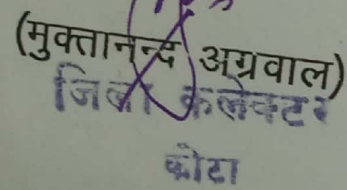 (मुक्तानन्द अग्रवाल)
जिला कलेक्टर
कोटा